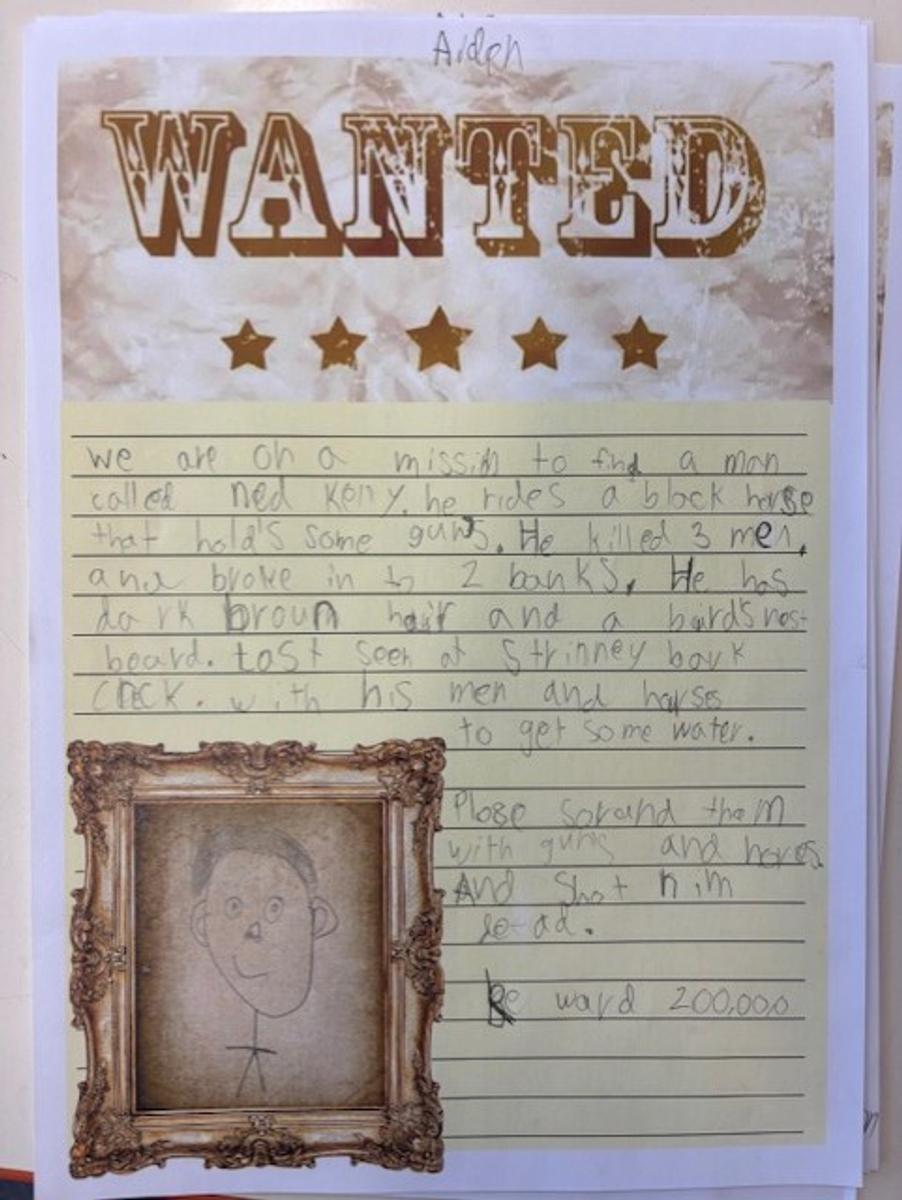 Aiden
WANTED
we are on a missin to find a man
called ned Kelly. he rides a black horse
that hold's some guns. He killed 3 men,
and broke in to 2 banks. He has
dark broun hair and a burd's nest
beard. Last seen at Strinney bark
creck. with his men and horses
to get some water.
Plese sorand them
with guns and hores
And Shot him
dead.
Re ward 200,000